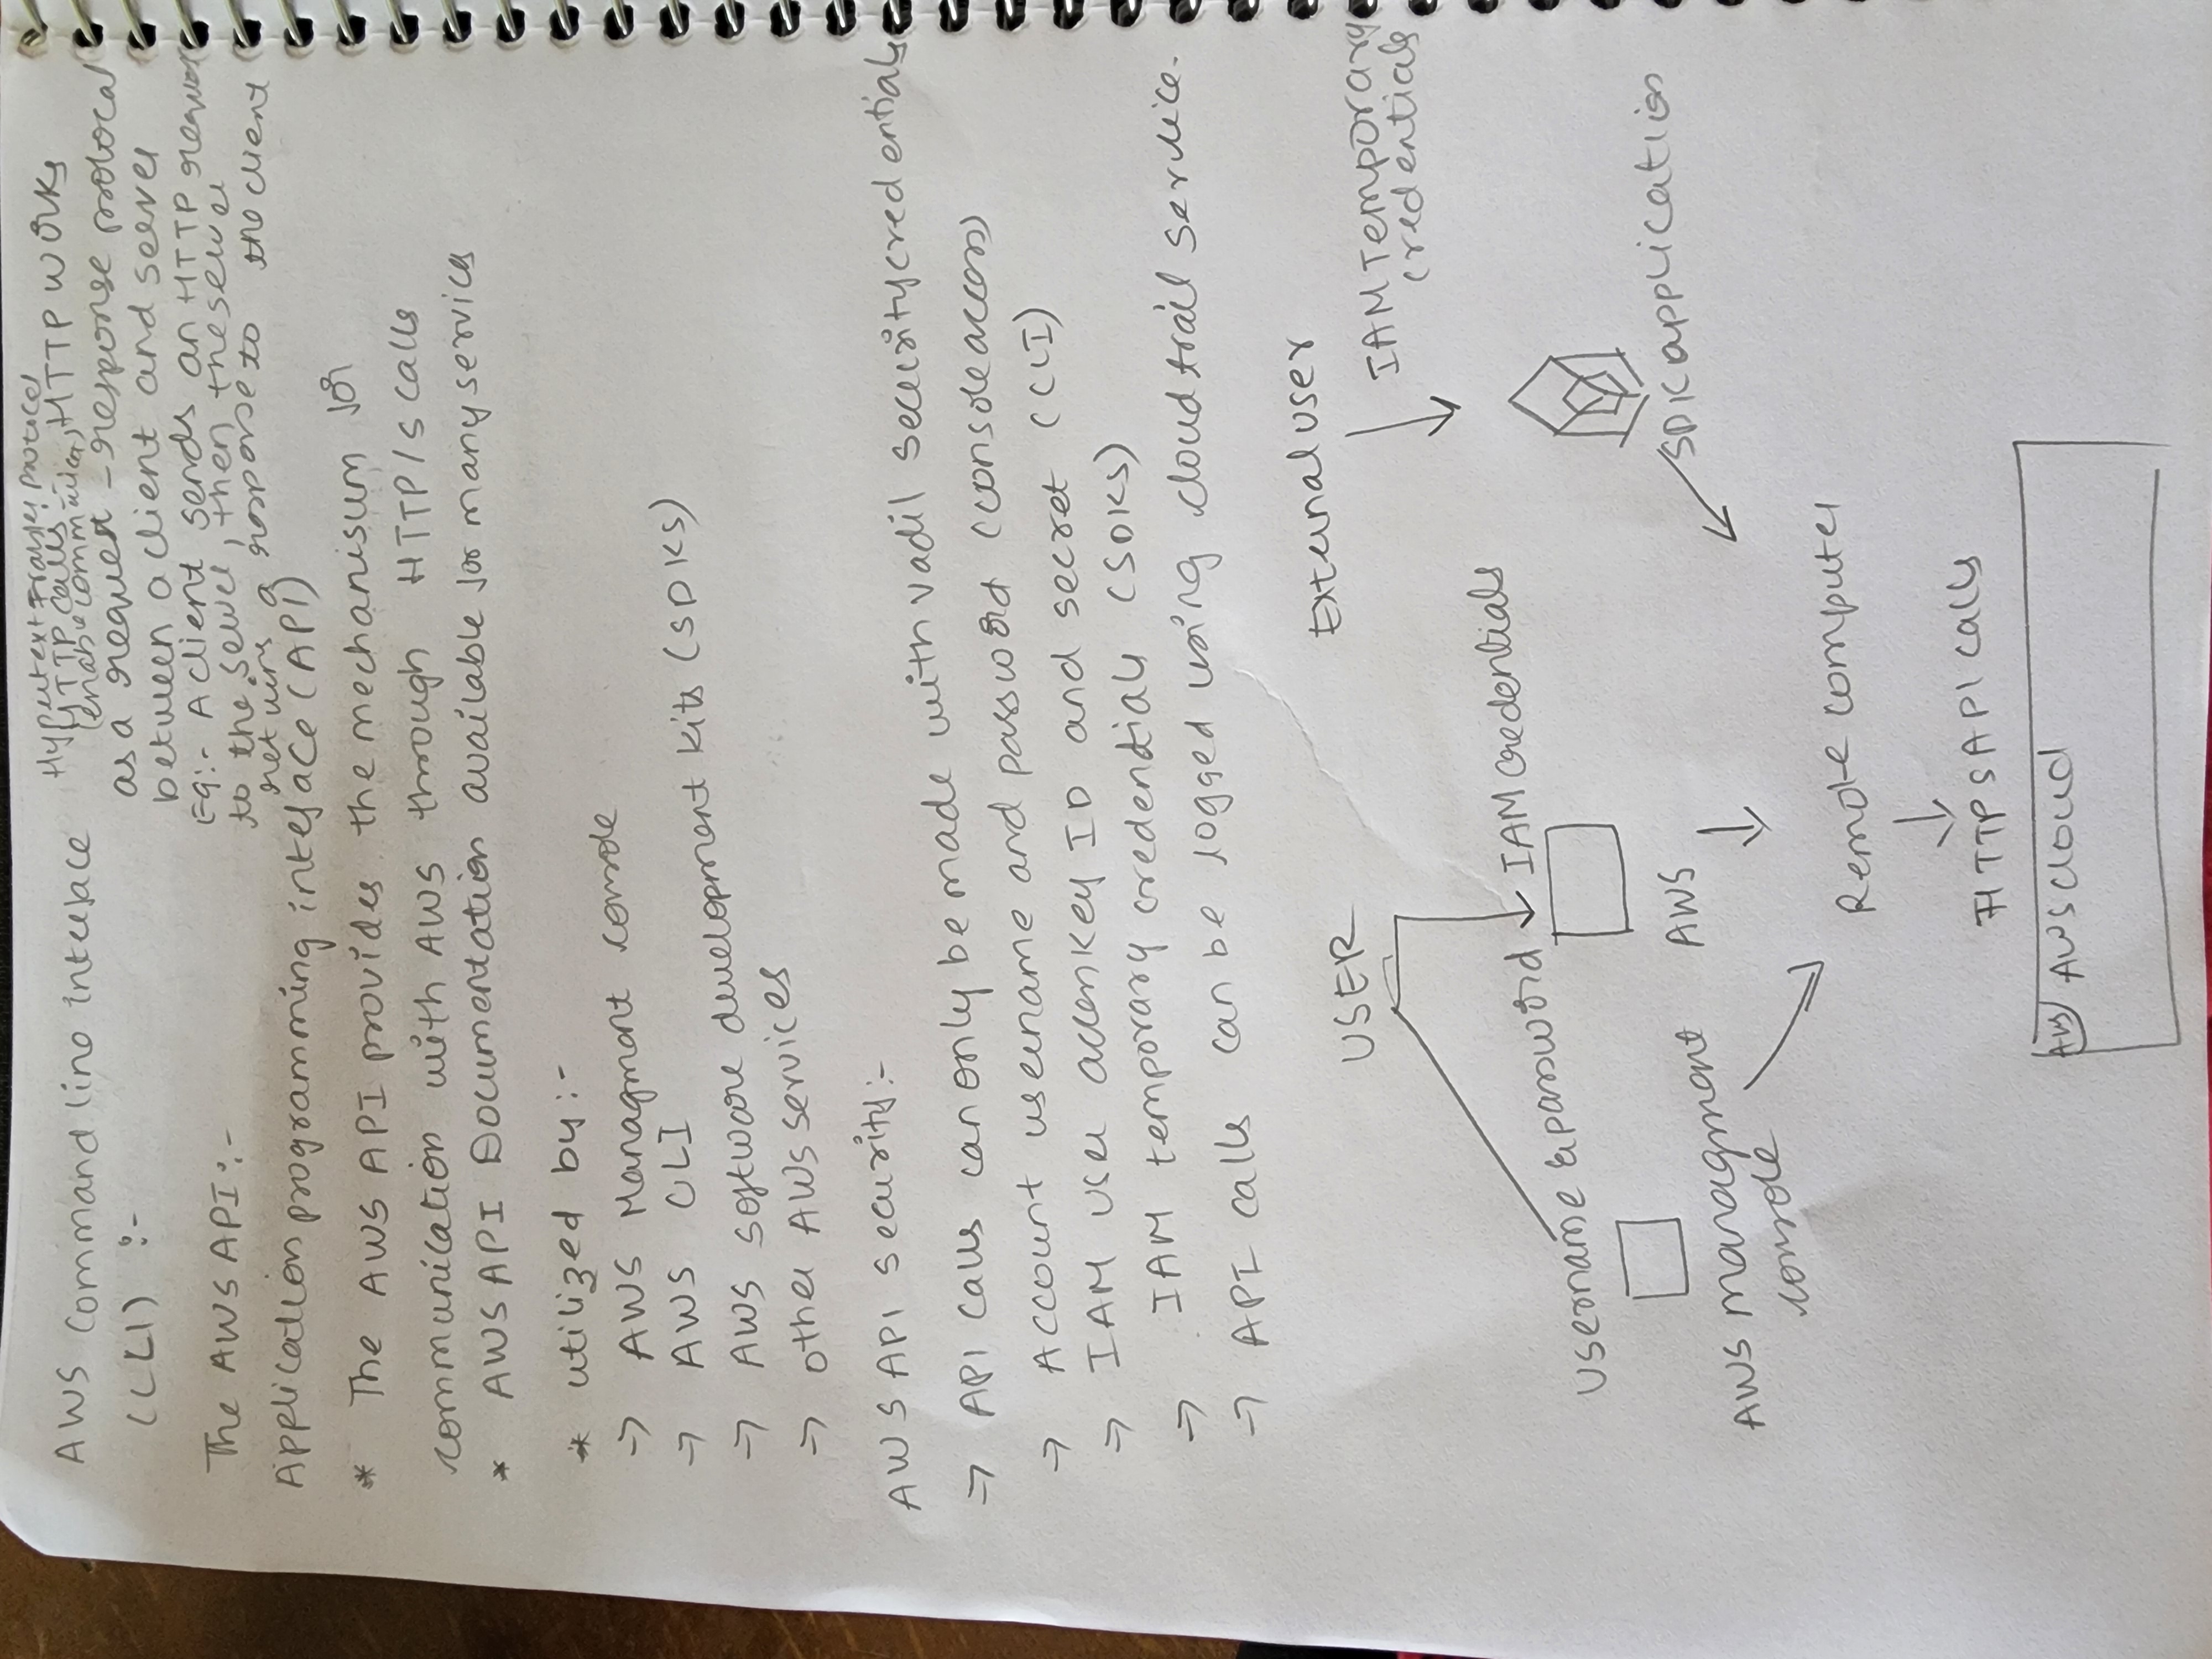 AWS Command line interface
(CLI) :-
Hypertext Transfer Protocol
HTTP calls :-
(enable communica), HTTP works
as a request - response protocal
between a client and server
Eg:- A client sends an HTTP request
to the server, then the server
returns a response to the client
The AWS API :-
Application programming inteface (API)
* The AWS API provides the mechanisum for
communication with AWS through HTTP/s calls
* AWS API Documentation available for many services
* utilized by :-
→ AWS Managment console
→ AWS CLI
→ AWS software development kits (SDKS)
→ other AWS services
AWS API security :-
→ API calls can only be made with vadil security credentials
→ Account username and password (console access)
→ IAM user access key ID and secret (CLI)
→ IAM temporary credentials (SDKS)
→ API calls can be logged using cloud trail service.
USER
External user
IAM Temporary
credentials
Username & password
IAM credentials
AWS managment
console
AWS
SDK application
Remote computer
HTTPS API calls
AWS AWS cloud